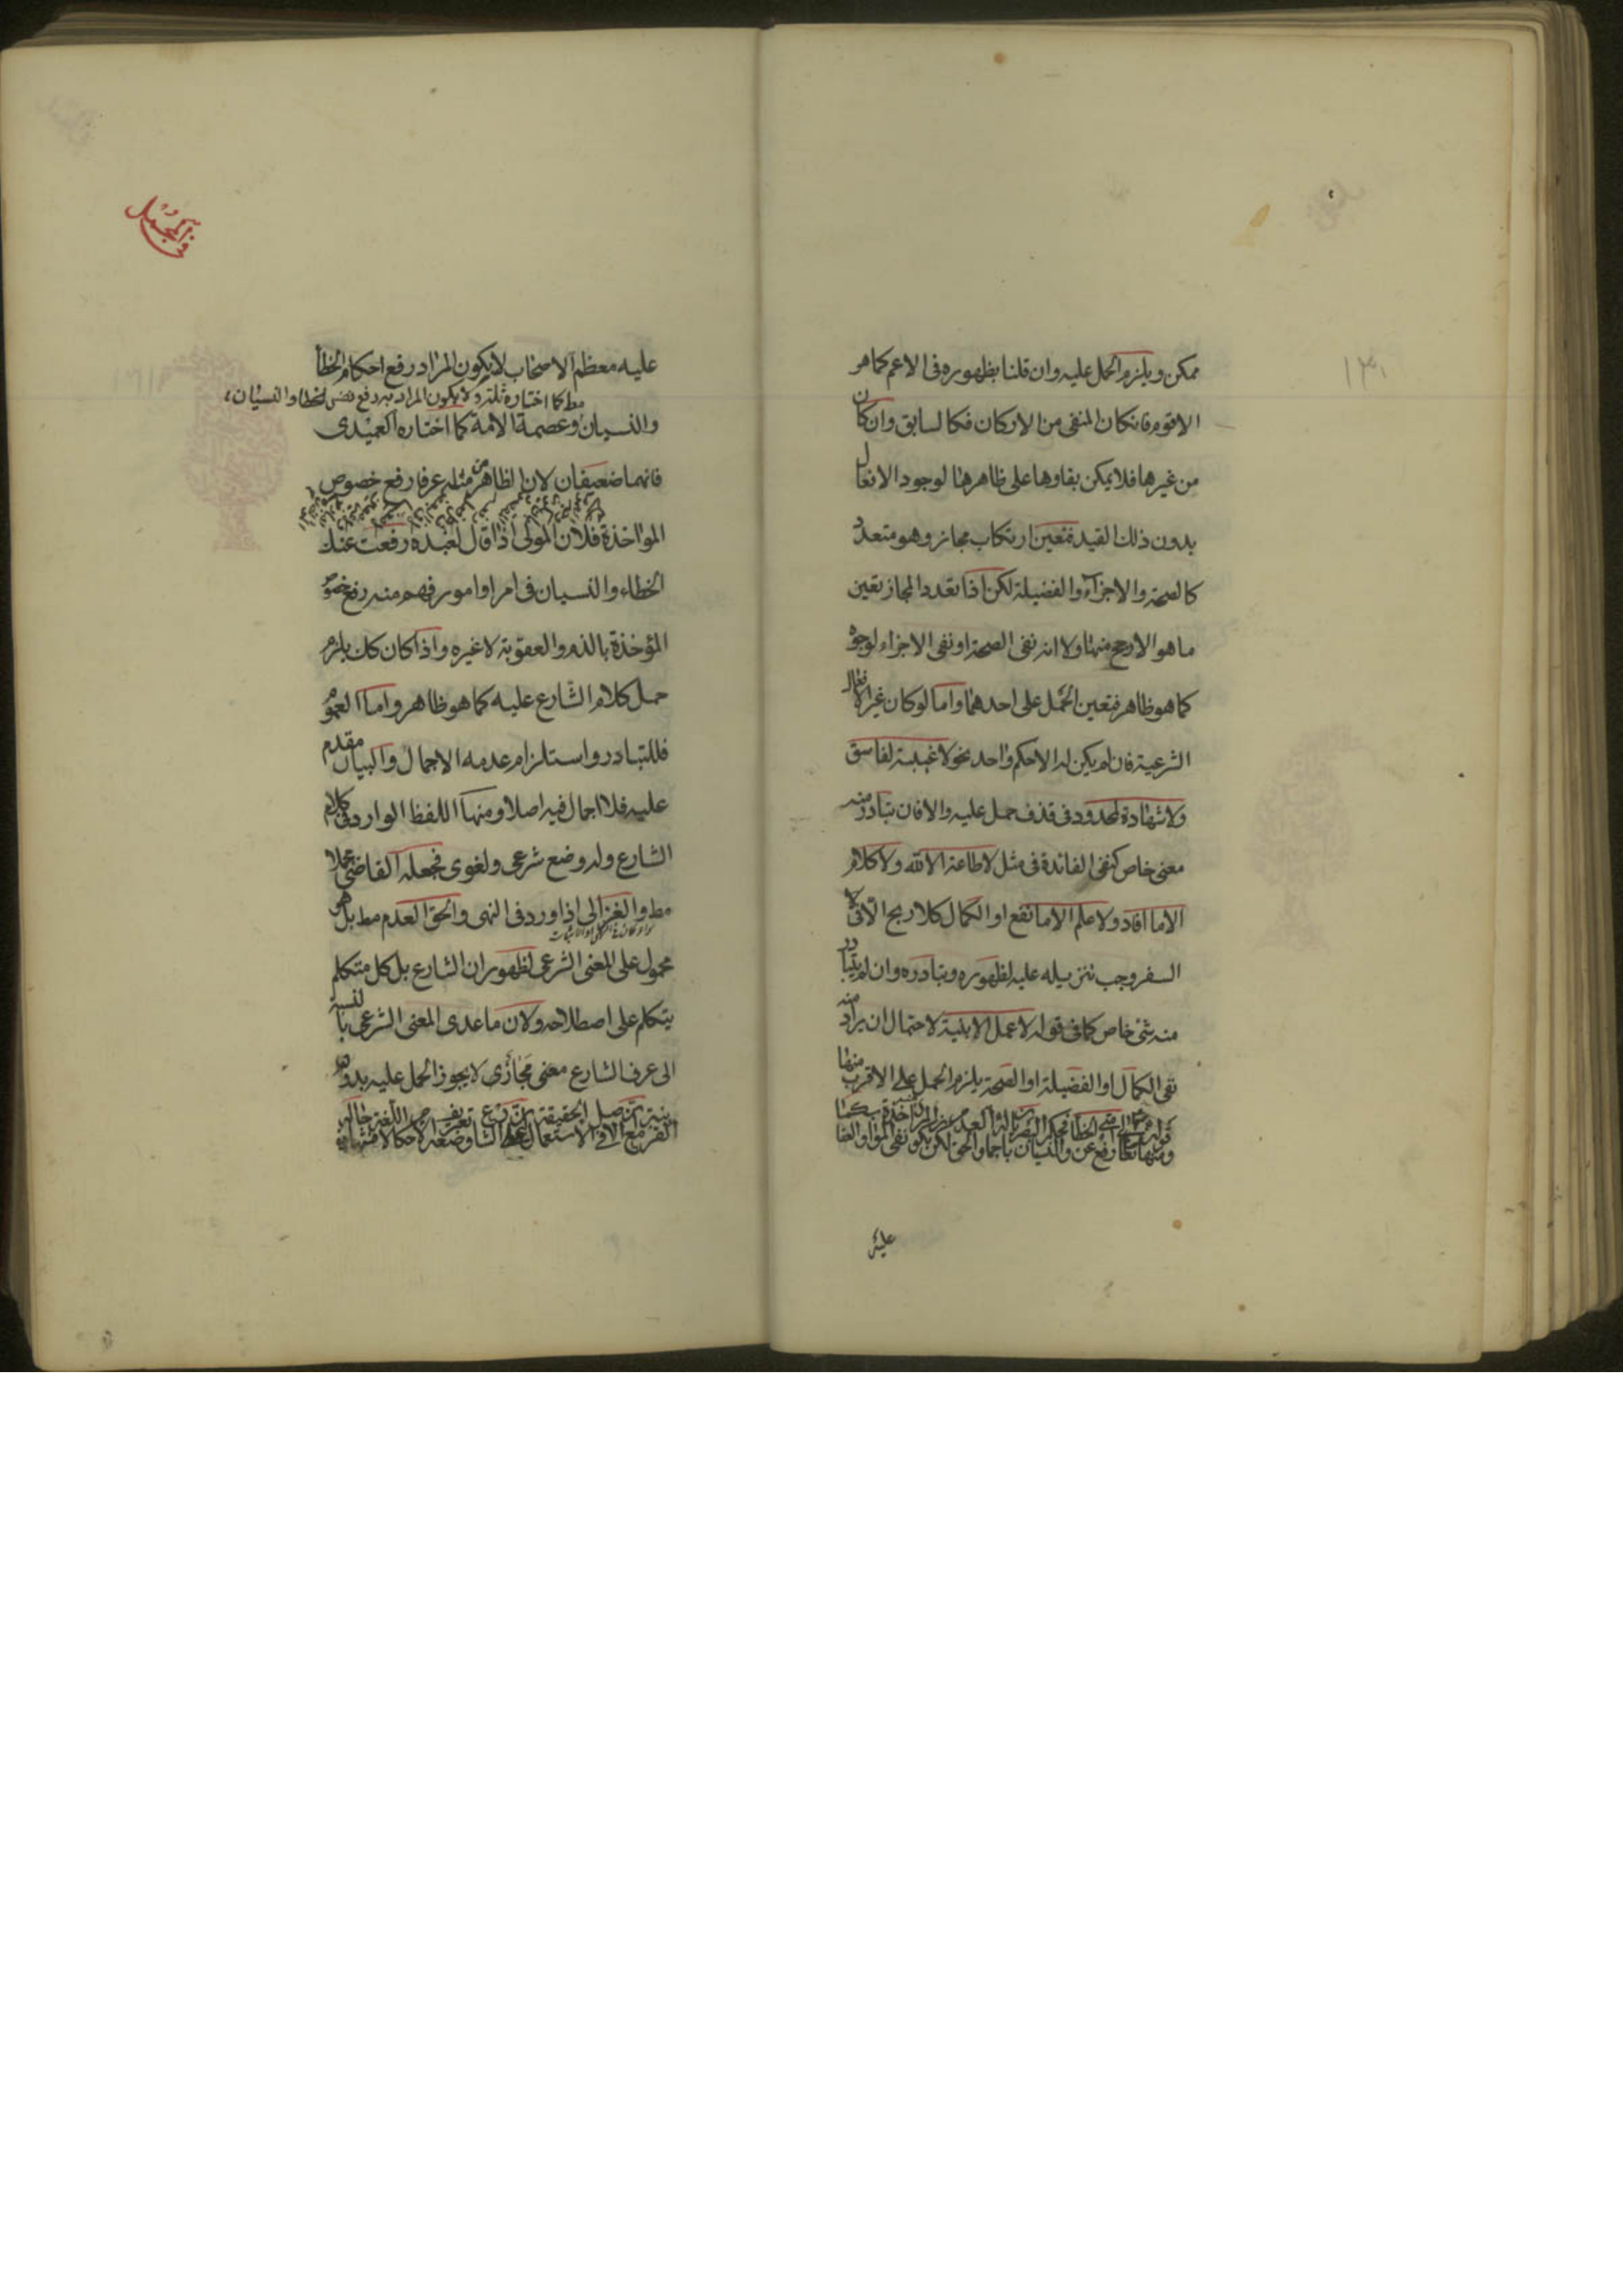 ممكن ويلزم الحمل عليه وان قلنا بظهوره فى الاعم كما هر
الاقوم فان كان المنفى من الاركان فكالسابق وان كان
من غيرها فلا يمكن بقاوها على ظاهرها لوجود الافعال
بدون ذلك القيد فتعين ارتكاب مجاز وهو متعدد
كالصحة والاجزاء والفضيلة لكن اذا تعدد المجاز تعين
ما هو الارجح منها ولا انه نفى الصحة او نفى الاجزاء لوجوه
كما هو ظاهر فتعين الحمل على احدهما واما لو كان غير الافعال
الشرعية فان لم يكن له الا حكم واحد نحو لا غيبة لفاسق
ولا شهادة لمحدود فى قذف حمل عليه والا فان تبادر منه
معنى خاص كنفى الفائدة فى مثل لا طاعة الا لله ولا كلام
الا ما افاد ولا علم الا ما نفع او الكمال كلا ربح الا فى
السفر وجب تنزيله عليه لظهوره وتبادره وان لم يتبادر
منه شئ خاص كما فى قوله لا عمل الا بنية لاحتمال ان يراد منه
نفى الكمال او الفضيلة او الصحة يلزم الحمل على الاقرب منها
عليه
فى المجمل
عليه معظم الاصحاب لا يكون المراد رفع احكام الخطأ
مط كما اختاره ثلة ولا يكون المراد به رفع نفس الخطا والنسيان
والنسيان وعصمة الائمة كما اختاره العميدى
فانهما ضعيفان لان الظاهر من مثله عرفا رفع خصوص
المواخذة فلان المولى اذا قال لعبده رفعت عنك
الخطاء والنسيان فى امر او امور فهم منه رفع خصوص
المؤخذة بالذم والعقوبة لا غيره واذا كان كك يلزم
حمل كلام الشارع عليه كما هو ظاهر واما العموم
فللتبادر واستلزام عدمه الاجمال والبيان مقدم
عليه فلا اجمال فيه اصلا ومنها اللفظ الوارد فى كلام
الشارع وله وضع شرعى ولغوى فجعله القاضى مجملا
مط والغزالى اذا ورد فى النهى والحق العدم مط بل هو
محمول على المعنى الشرعى لظهور ان الشارع بل كل متكلم
يتكلم على اصطلاحه ولان ما عدى المعنى الشرعى بالنسبة
الى عرف الشارع معنى مجازى لا يجوز الحمل عليه بدون